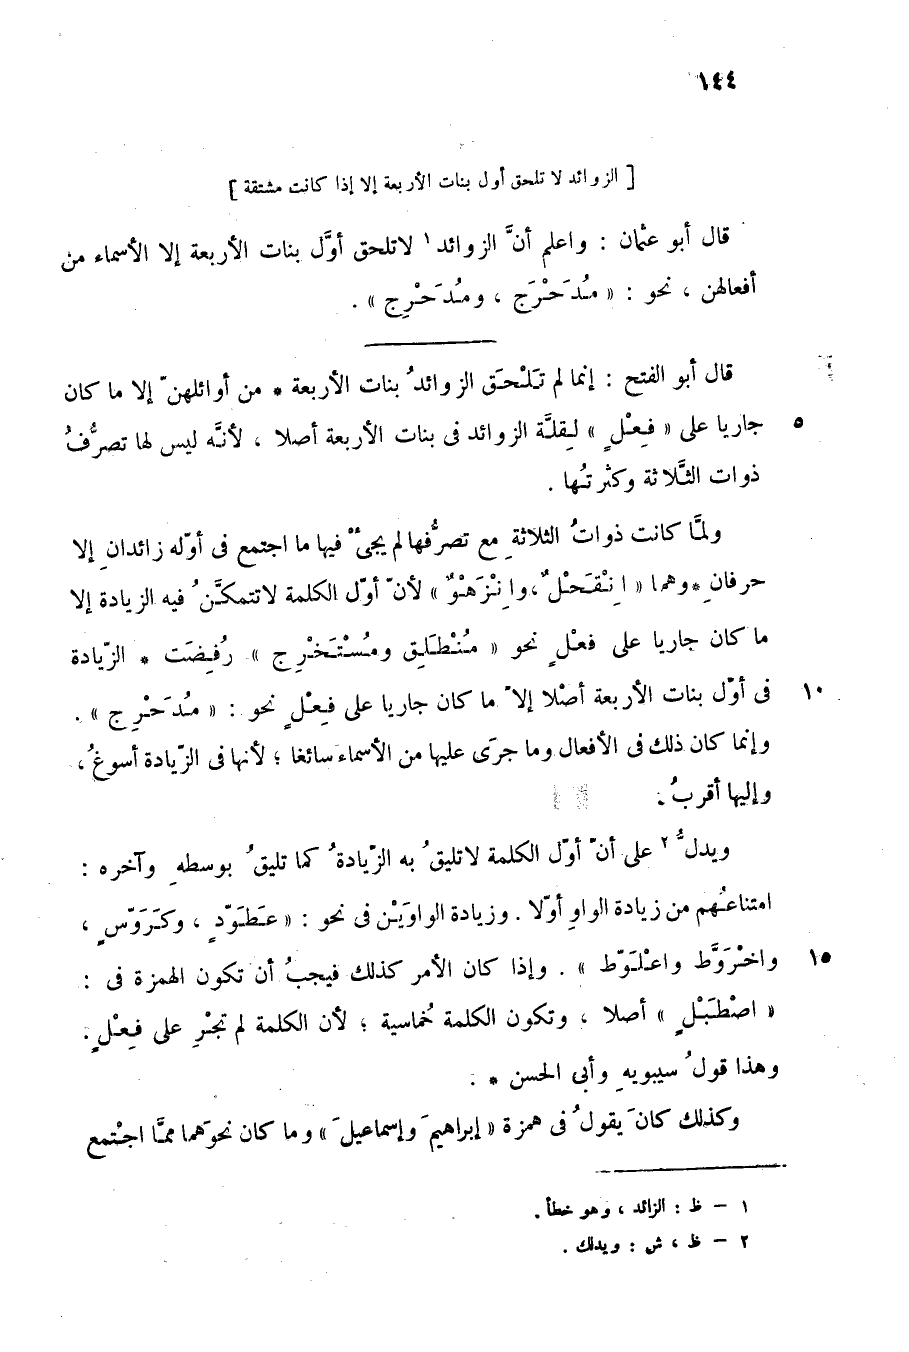 ١٤٤
[ الزوائد لا تلحق أول بنات الأربعة إلا إذا كانت مشتقة ]
قال أبو عثمان : واعلم أنَّ الزوائد ١ لاتلحق أوَّل بنات الأربعة إلا الأسماء من
أفعالهن ، نحو : « مُدَحْرَج ، ومُدَحْرِج » .
قال أبو الفتح : إنما لم تَلْحَق الزوائدُ بنات الأربعة * من أوائلهنّ إلا ما كان
٥ جاريا على « فِعْلٍ » لِقلَّة الزوائد فى بنات الأربعة أصلا ، لأنَّه ليس لها تصرُّفُ
ذوات الثَّلاثة وكثرتُها .
ولمَّا كانت ذواتُ الثلاثةِ مع تصرُّفها لم يجئْ فيها ما اجتمع فى أوّله زائدانِ إلا
حرفانِ * وهما « اِنْقَحْلٌ ، واِنْزَهْوٌ » لأنّ أوّل الكلمة لاتتمكَّنُ فيه الزيادة إلا
ما كان جاريا على فعْلٍ نحو « مُنْطَلِق ومُسْتَخْرِج » رُفِضَت * الزّيادة
١٠ فى أوّل بنات الأربعة أصْلا إلاّ ما كان جاريا على فِعْلٍ نحو : « مُدَحْرِج » .
وإنما كان ذلك فى الأفعال وما جرَى عليها من الأسماء سائغا ؛ لأنها فى الزّيادة أسوغُ ،
وإليها أقربُ .
ويدلُّ ٢ على أنّ أوّل الكلمة لاتليقُ به الزّيادةُ كما تليقُ بوسطهِ وآخره :
امتناعُهم من زيادة الواوِ أوّلا . وزيادة الواوَيْن فى نحو : « عَطَوّدٍ ، وكَرَوّسٍ ،
١٥ واخْرَوَّط واعْلَوّط » . وإذا كان الأمر كذلك فيجبُ أن تكون الهمزة فى :
« اصْطَبْلٍ » أصلا ، وتكون الكلمة خُماسية ؛ لأن الكلمة لم تجْرِ على فِعْلٍ .
وهذا قولُ سيبويهِ وأبى الحسن * .
وكذلك كانَ يقولُ فى همزة « إبراهيمَ وإسماعيلَ » وما كان نحوَهما ممَّا اجْتمع
١ – ظ : الزائد ، وهو خطأ .
٢ – ظ ، ش : ويدلك .